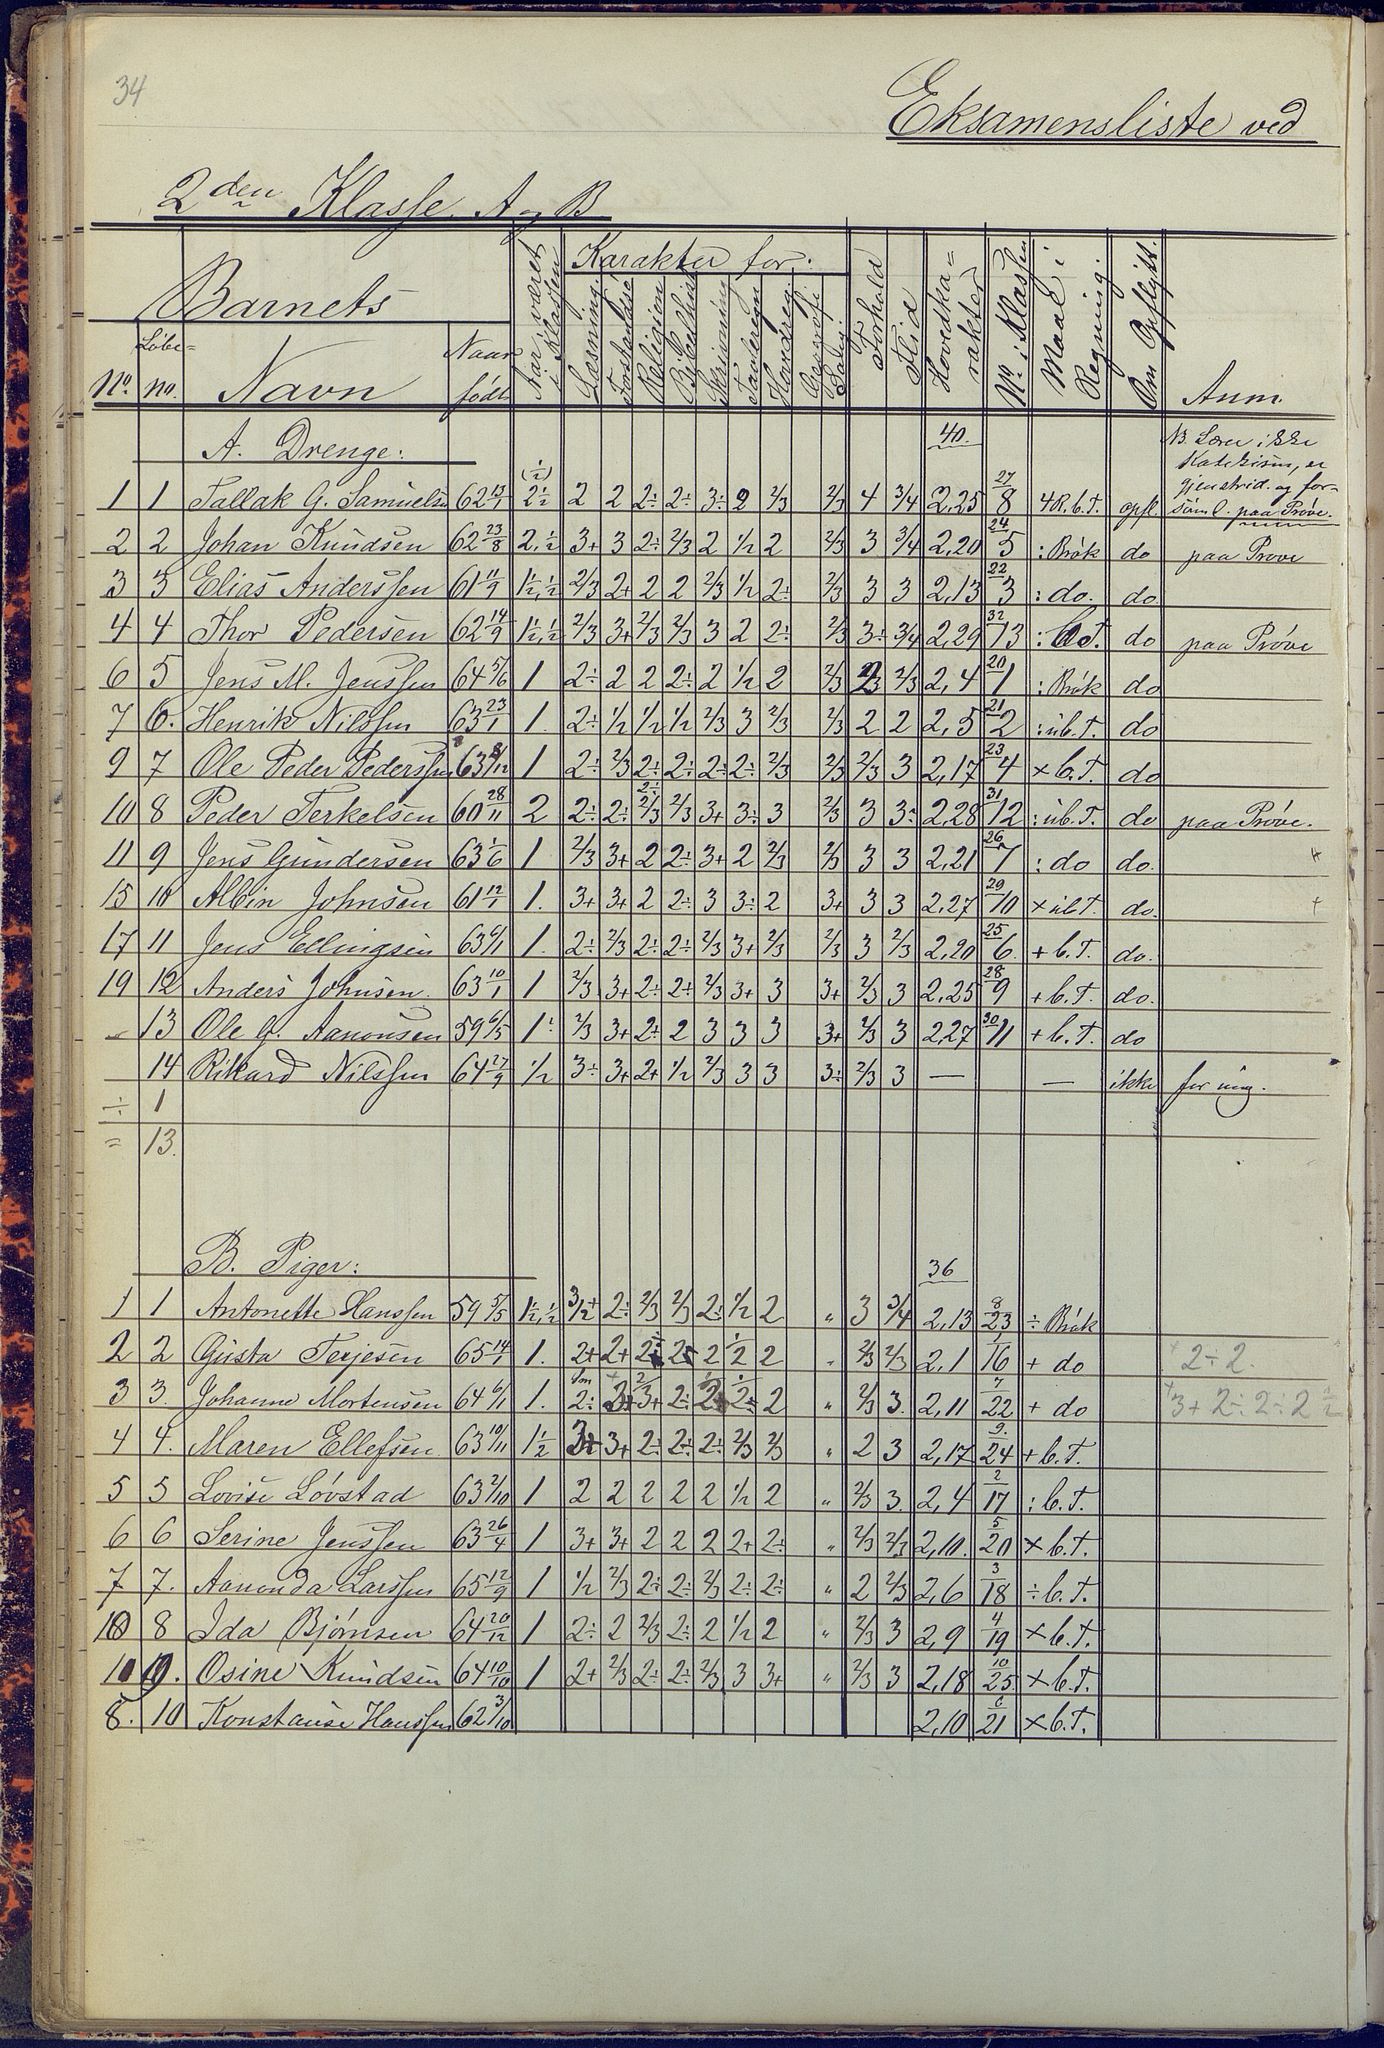 34
Eksamensliste ved
2den Klasse A og B
Barnets
No. Løbe-no. Navn Naar født Aar været i Klassen Karakter for: Læsning. Forstandsø. Religion Bibelhist. Skrivning Tavleregn Hovdreg. Geografi Sang Forhold Flid Hovedka-rakter No. i Klassen Maal i Regning. Om Opflytt. Anm.
A. Drenge: 40. NB. Lærer ikke
Katekism, er
gjenstrid. og for-
1 1 Tallak G. Samuelsen 62 13/1 (½) 2½ 2 2 2÷ 2÷ 3÷ 2 2/3 2/3 4 3/4 2,25 27/8 4R.b.T. opfl. søml. paa Prøve.
2 2 Johan Knudsen 62 23/8 2,½ 3+ 3 2÷ 2/3 2 1/2 2 2/3 3 3/4 2,20 24/5 :Brøk do paa Prøve
3 3 Elias Anderssen 61 11/9 1½,½ 2/3 2+ 2 2 2/3 1/2 2÷ 2/3 3 3 2,13 22/3 :do. do
4 4 Thor Pedersen 62 14/9 1½,½ 2/3 3+ 2/3 2/3 3 2 2÷ 2/3 3÷ 3/4 2,29 32/13 :b.T. do paa Prøve
6 5 Jens M. Jenssen 64 5/6 1 2÷ 2 2 2÷ 2 1/2 2 2/3 2/3 2/3 2,4 20/1 :Brøk do
7 6. Henrik Nilssen 63 23/1 1. 2÷ 1/2 1/2 1/2 2/3 3 2/3 2/3 2 2 2,5 21/2 :ub.T. do
9 7 Ole Peder Pederssen 63 8/12 1 2÷ 2/3 2÷ 2÷ 2÷ 2÷ 2/3 2/3 2/3 3 2,17 23/4 ×b.T. do
10 8 Peder Terkelsen 60 28/11 2 2÷ 2÷ 2÷ 2/3 2/3 3+ 3÷ 3 2/3 3 3÷ 2,28 31/12 :ub.T. do paa Prøve.
11 9 Jens Gundersen 63 1/6 1 2/3 3+ 2 2÷ 3+ 2 2/3 2/3 3 3 2,21 26/7 :do do. +
15 10 Albin Johnsen 61 12/1 1. 3+ 3+ 2 2÷ 3 3÷ 2 3+ 3 3 2,27 29/10 ×ubT. do. +
17 11 Jens Ellingsen 63 6/1 1. 2÷ 2/3 2÷ 2÷ 2/3 3+ 2/3 2/3 3 2/3 2,20 25/6. +b.T. do.
19 12 Anders Johnsen. 63 10/1 1 2/3 3+ 2÷ 2÷ 2/3 3+ 3 3+ 2/3 3 2,25 28/9 +b.T. do.
13 Ole G. Aanonsen 59 6/5 1÷ 2/3 3+ 2÷ 2 3 3 3 3+ 2/3 3 2,27 30/11 +b.T. do
14 Rikard Nilssen 64 27/9 1/2 3÷ 3+ 2+ 1/2 2/3 3 3 3÷ 2/3 3 — — ikke for ung.
÷ 1
= 13.
B. Piger: 36
1 1 Antonette Hanssen 59 5/5 1½,½ 3/2+ 2÷ 2/3 2/3 2÷ 1/2 2 " 3 3/4 2,13 8/23 ÷Brøk
2 2 Gusta Terjesen 65 14/1 1. 2+ 2+ 2÷ 2÷ 2 1/2 2 " 2/3 2/3 2,1 1/16 + do + 2÷2.
3 3. Johanne Mortensen 64 6/1 1. 2÷ 3+ 3+ 2÷ 2+ 2÷ 2 " 2/3 3. 2,11 7/22 + do +3+ 2÷2÷2 1/2
4 4. Maren Ellefsen 63 10/11 1½ 3+ 3+ 2÷ 2÷ 2÷ 2/3 2/3 " 2 3 2,17 9./24 +b.T.
5 5 Lovise Løvstad 63 2/10 1 2 2 2 2 2 1/2 2 " 2/3 3. 2,4 2/17 :b.T.
6 6 Serine Jenssen 63 26/4 1 3+ 3+ 2 2 2 2+ 2÷ " 2/3 2/3 2,10. 5/20 ×b.T.
7 7. Aanonda Larssen 65 12/9 1 1/2 2/3 2÷ 2÷ 2/3 2÷ 2÷ " 2 2/3 2,6 3/18 ÷b.T.
10 8 Ida Bjørnsen 64 20/12 1 2÷ 2 2/3 2÷ 2 1/2 2 " 2/3 3 2,9 4/19 ×b.T.
10 9. Osine Knudsen 64 10/10 1 2+ 2/3 2÷ 2÷ 2/3 3 3+ " 2/3 3 2,18 10/25. ×b.T.
8. 10 Konstanse Hanssen 62 3/10 2,10 6/21 ×b.T.